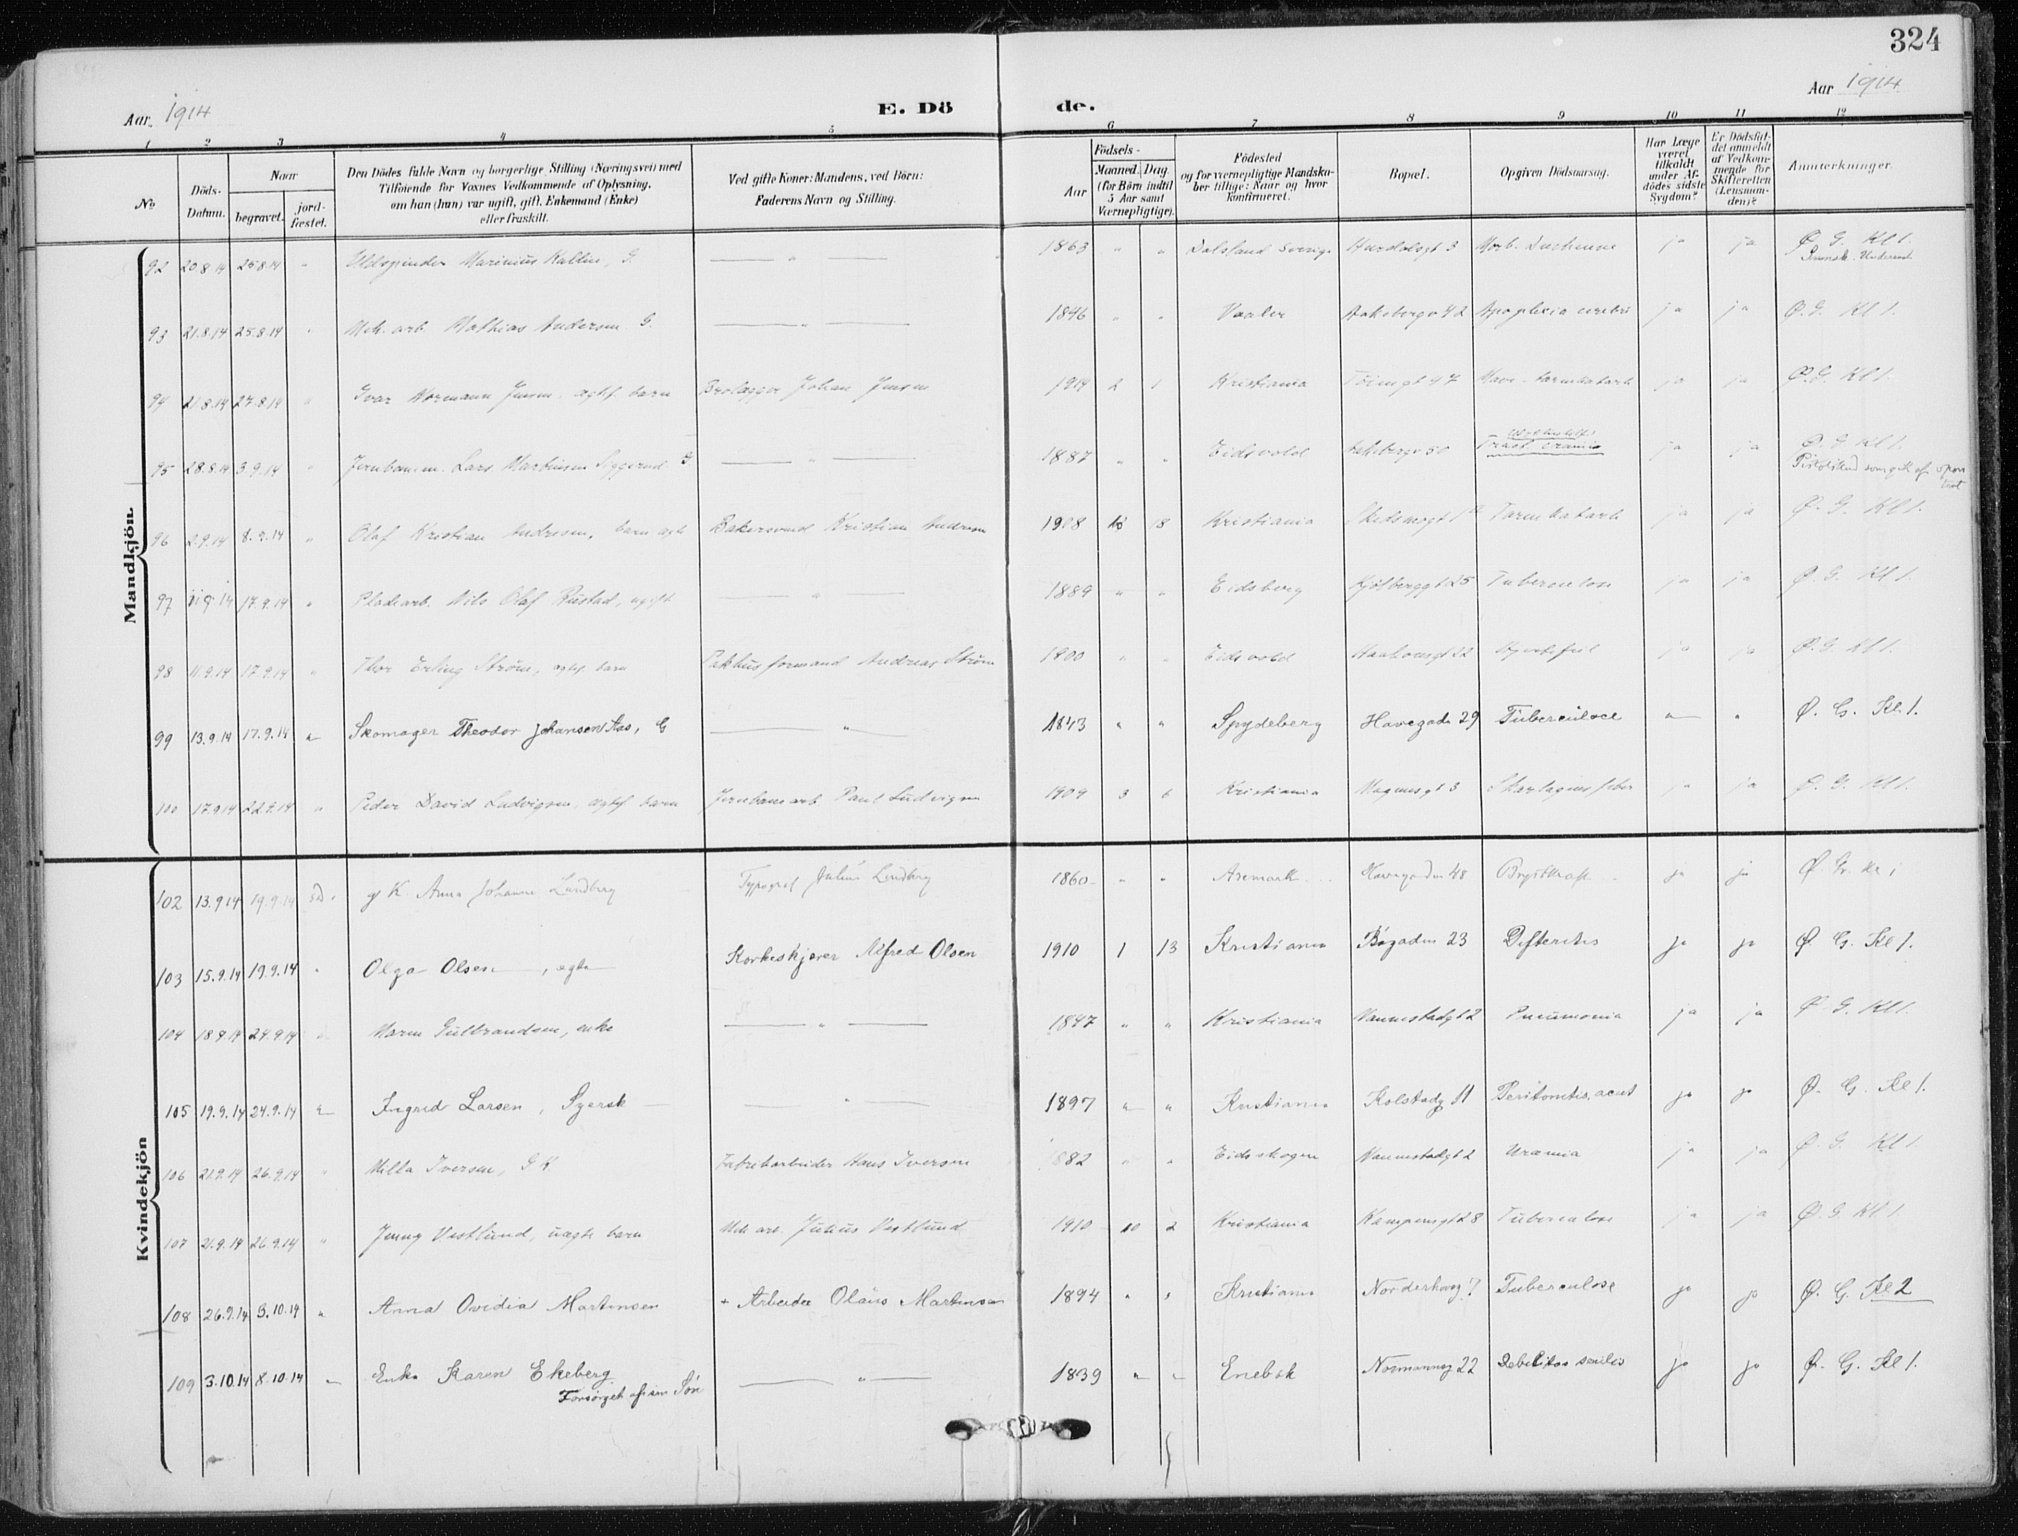 324
Aar 1914
E. Dö de.
Aar 1914
1 2 3 4 5 6 7 8 9 10 11 12
No
Döds-
Datum.
Naar
begravet.
jord-
fæstet.
Den Dödes fulde Navn og borgerlige Stilling (Næringsvei) med
Tilföiende for Voxnes Vedkommende af Oplysning,
om han (hun) var ugift, gift, Enkemand (Enke)
eller fraskilt.
Ved gifte Koner: Mandens, ved Börn:
Faderens Navn og Stilling.
Aar
Födsels-
Maaned. Dag
(for Börn indtil
5 Aar samt
Værnepligtige).
Födested
og for værnepligtige Mandska-
ber tillige: Naar og hvor
konfirmeret.
Bopæl.
Opgiven Dödsaarsag.
Har Læge
været
tilkaldt
under Af-
dödes sidste
Sygdom?
Er Dödsfal-
det anmeldt
af Vedkom-
mende for
Skifteretten
(Lensman-
den)?
Anmærkninger.
Mandkjön.
92 20.8.14 25.8.14 " Uldspinder Marinius Kallin, G. — " — 1863 " " Dalsland Sverige 3 Morb. ja ja Ø. G. Kl 1.
93 21.8.14 25.8.14 " Mek. arb. Mathias Andersen G. — " — 1846 " " Vaaler Aakebergv 42 Apoplexia cerebri ja ja Ø. G. Kl 1.
94 21.8.14 27.8.14 " Ivar Hermann Jensen, ægtef. barn Brolægger Johan Jensen 1914 2 1 Kristiania Töiengt 47 Mave-tarmkatarh ja ja Ø. G. Kl 1.
95 28.8.14 3.9.14 " Jernbanem. Lars Martinsen G — " — 1887 " " Eidsvold Aakebergv 50 Fract. cranii ja ja Ø. G. Kl 1.
Pistolskud som gik af
96 2.9.14 8.9.14 " Olaf Kristian Andresen, barn ægte Bakersvend Kristian Andresen 1908 10 18 Kristiania Tarmkatarh ja ja Ø. G. Kl 1.
97 11.9.14 17.9.14 " Pladearb. Nils Olaf Rustad, ugift — " — 1889 " " Eidsberg Kjölberggt 25 Tuberculose ja ja Ø. G. Kl 1.
98 11.9.14 17.9.14 " Thor Erling Ström, ægtef. barn Pakhusformand Andreas Ström 1900 " " Eidsvold 22 Hjertefeil ja ja Ø. G. Kl 1.
99 13.9.14 17.9.14 " Skomager Theodor Johansen Aas, G — " — 1843 " " Spydeberg Havegade 29 Tuberculose " " Ø. G. Kl. 1.
100 17.9.14 22.9.14 " Peder David Ludvigsen, ægtef. barn Jernbanearb. Paul Ludvigsen 1909 3 6 Kristiania Magnusgt 3 Skarlagensfeber ja ja Ø. G. Kl 1.
Kvindekjön
102 13.9.14 19.9.14 g K Anna Johanne Lindberg Typograf Julius Lindberg 1860 " " Aremark Havegaden 48 Brystkraft ja ja Ø. G. Kl 1
103 15.9.14 19.9.14 " Olga Olsen, ægte Korkeskjærer Alfred Olsen 1910 1 13 Kristiania Bögaden 23 Difteritis ja ja Ø. G. Kl 1.
104 18.9.14 24.9.14 " Maren Gulbrandsen, enke — " — 1847 " " Kristiania Nannestadgt 2 Pneumonia ja ja Ø. G. Kl 1.
105 19.9.14 24.9.14 " Ingrid Larsen, Syersk — " — 1897 " " Kristiania Kolstadg 11 Peritonitis, acut ja ja Ø. G. Kl 1.
106 21.9.14 26.9.14 " Milla Iversen, G K Fabrikarbeider Hans Iversen 1882 " " Eidskogen Nannestadgt 2 Uræmia ja ja Ø. G. Kl 1.
107 21.9.14 26.9.14 " Jenny Vestlund, uægte barn Mek arb. Julius Vestlund 1910 10 2 Kristiania Kampensgt 28 Tuberculose ja ja Ø. G. Kl 1.
108 26.9.14 3.10.14 " Anna Ovidia Martinsen + Arbeider Olaus Martinsen 1894 " " Kristiania Norderhovg 17 Tuberculose ja ja Ø. G. Kl 2
109 3.10.14 8.10.14 " Enke Karen Ekeberg — " — 1839 " " Enebak Normannsg 22 Debilitas senilis ja ja Ø. G. Kl 1.
Forsörget af sin Sön